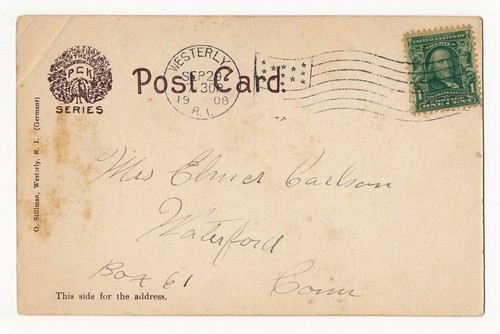 THE
P C K
SERIES
O. Stillman, Westerly, R. I. (Germany)
Post Card.
WESTERLY
SEP 29
30
19 08
R. I.
UNITED STATES OF
AMERICA
1
Mrs Elmer Carlson
Waterford
Box 61 Conn
This side for the address.